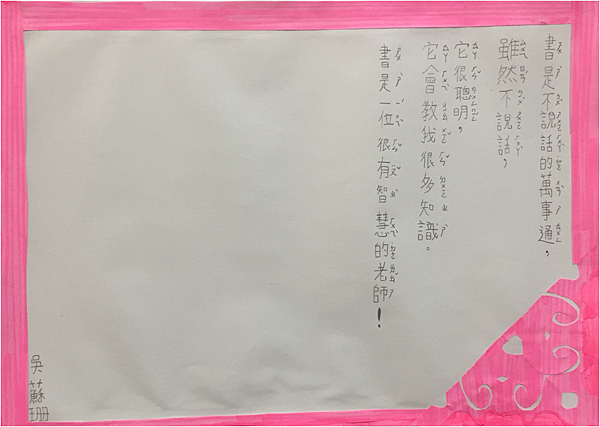 書是不說話的萬事通，
雖然不說話，
它很聰明，
它會教我很多知識。
書是一位很有智慧的老師！
吳蘇珊